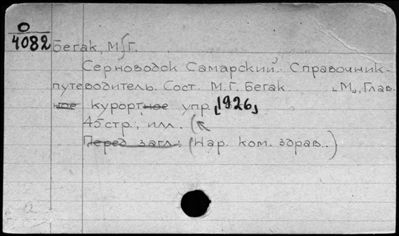 О
4082
Бегак, М.Г.
Серноводск Самарский. Справочник-
путеводитель. Сост. М.Г. Бегак. [М., Глав.
ное курортное упр., 1926]
45 стр., илл.
Перед загл.: (Нар. ком. здрав..)